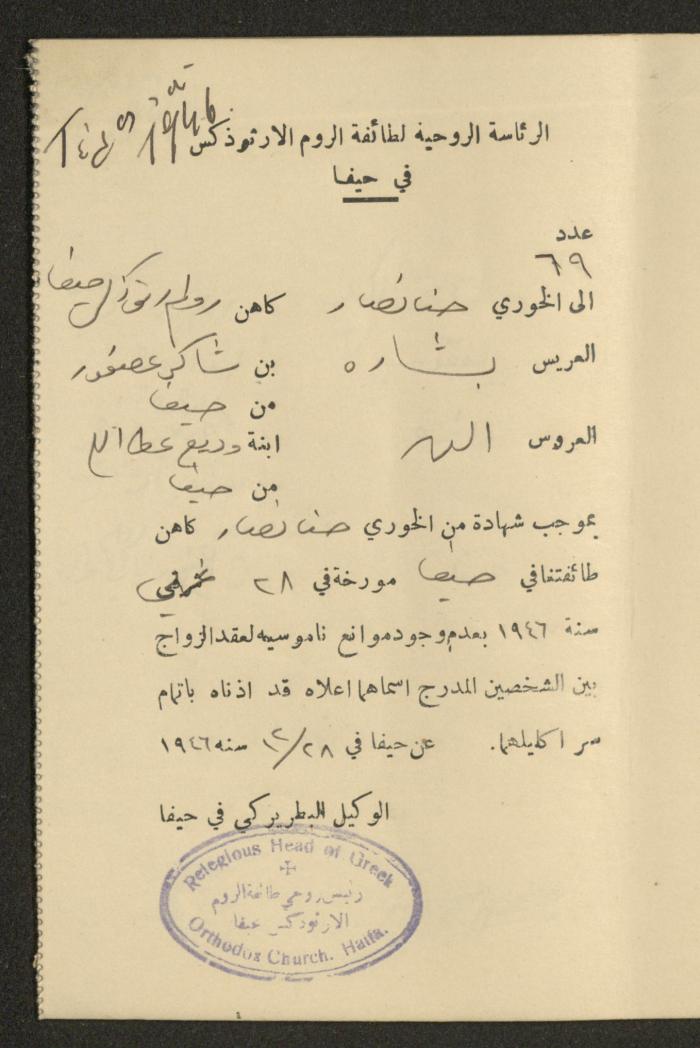 الرئاسة الروحية لطائفة الروم الارثوذكس
في حيفا
عدد
٦٩
الى الخوري حنا نصار كاهن روم ارثوذكس حيفا
العريس بشاره بن شاكر عصفور
من حيفا
العروس ابنة وديع عطا الله
من حيفا
بموجب شهادة من الخوري حنا نصار كاهن
طائفتنا في حيفا مورخة في ٢٨
سنة ١٩٤٦ بعدم وجود موانع ناموسيه لعقد الزواج
بين الشخصين المدرج اسماهما اعلاه قد اذناه باتمام
سر اكليلهما. عن حيفا في ٢٨/١٢ سنه ١٩٤٦
الوكيل البطريركي في حيفا
Relegious Head of Greek
رئيس روحي طائفة الروم
الارثوذكس حيفا
Orthodox Church. Haifa.